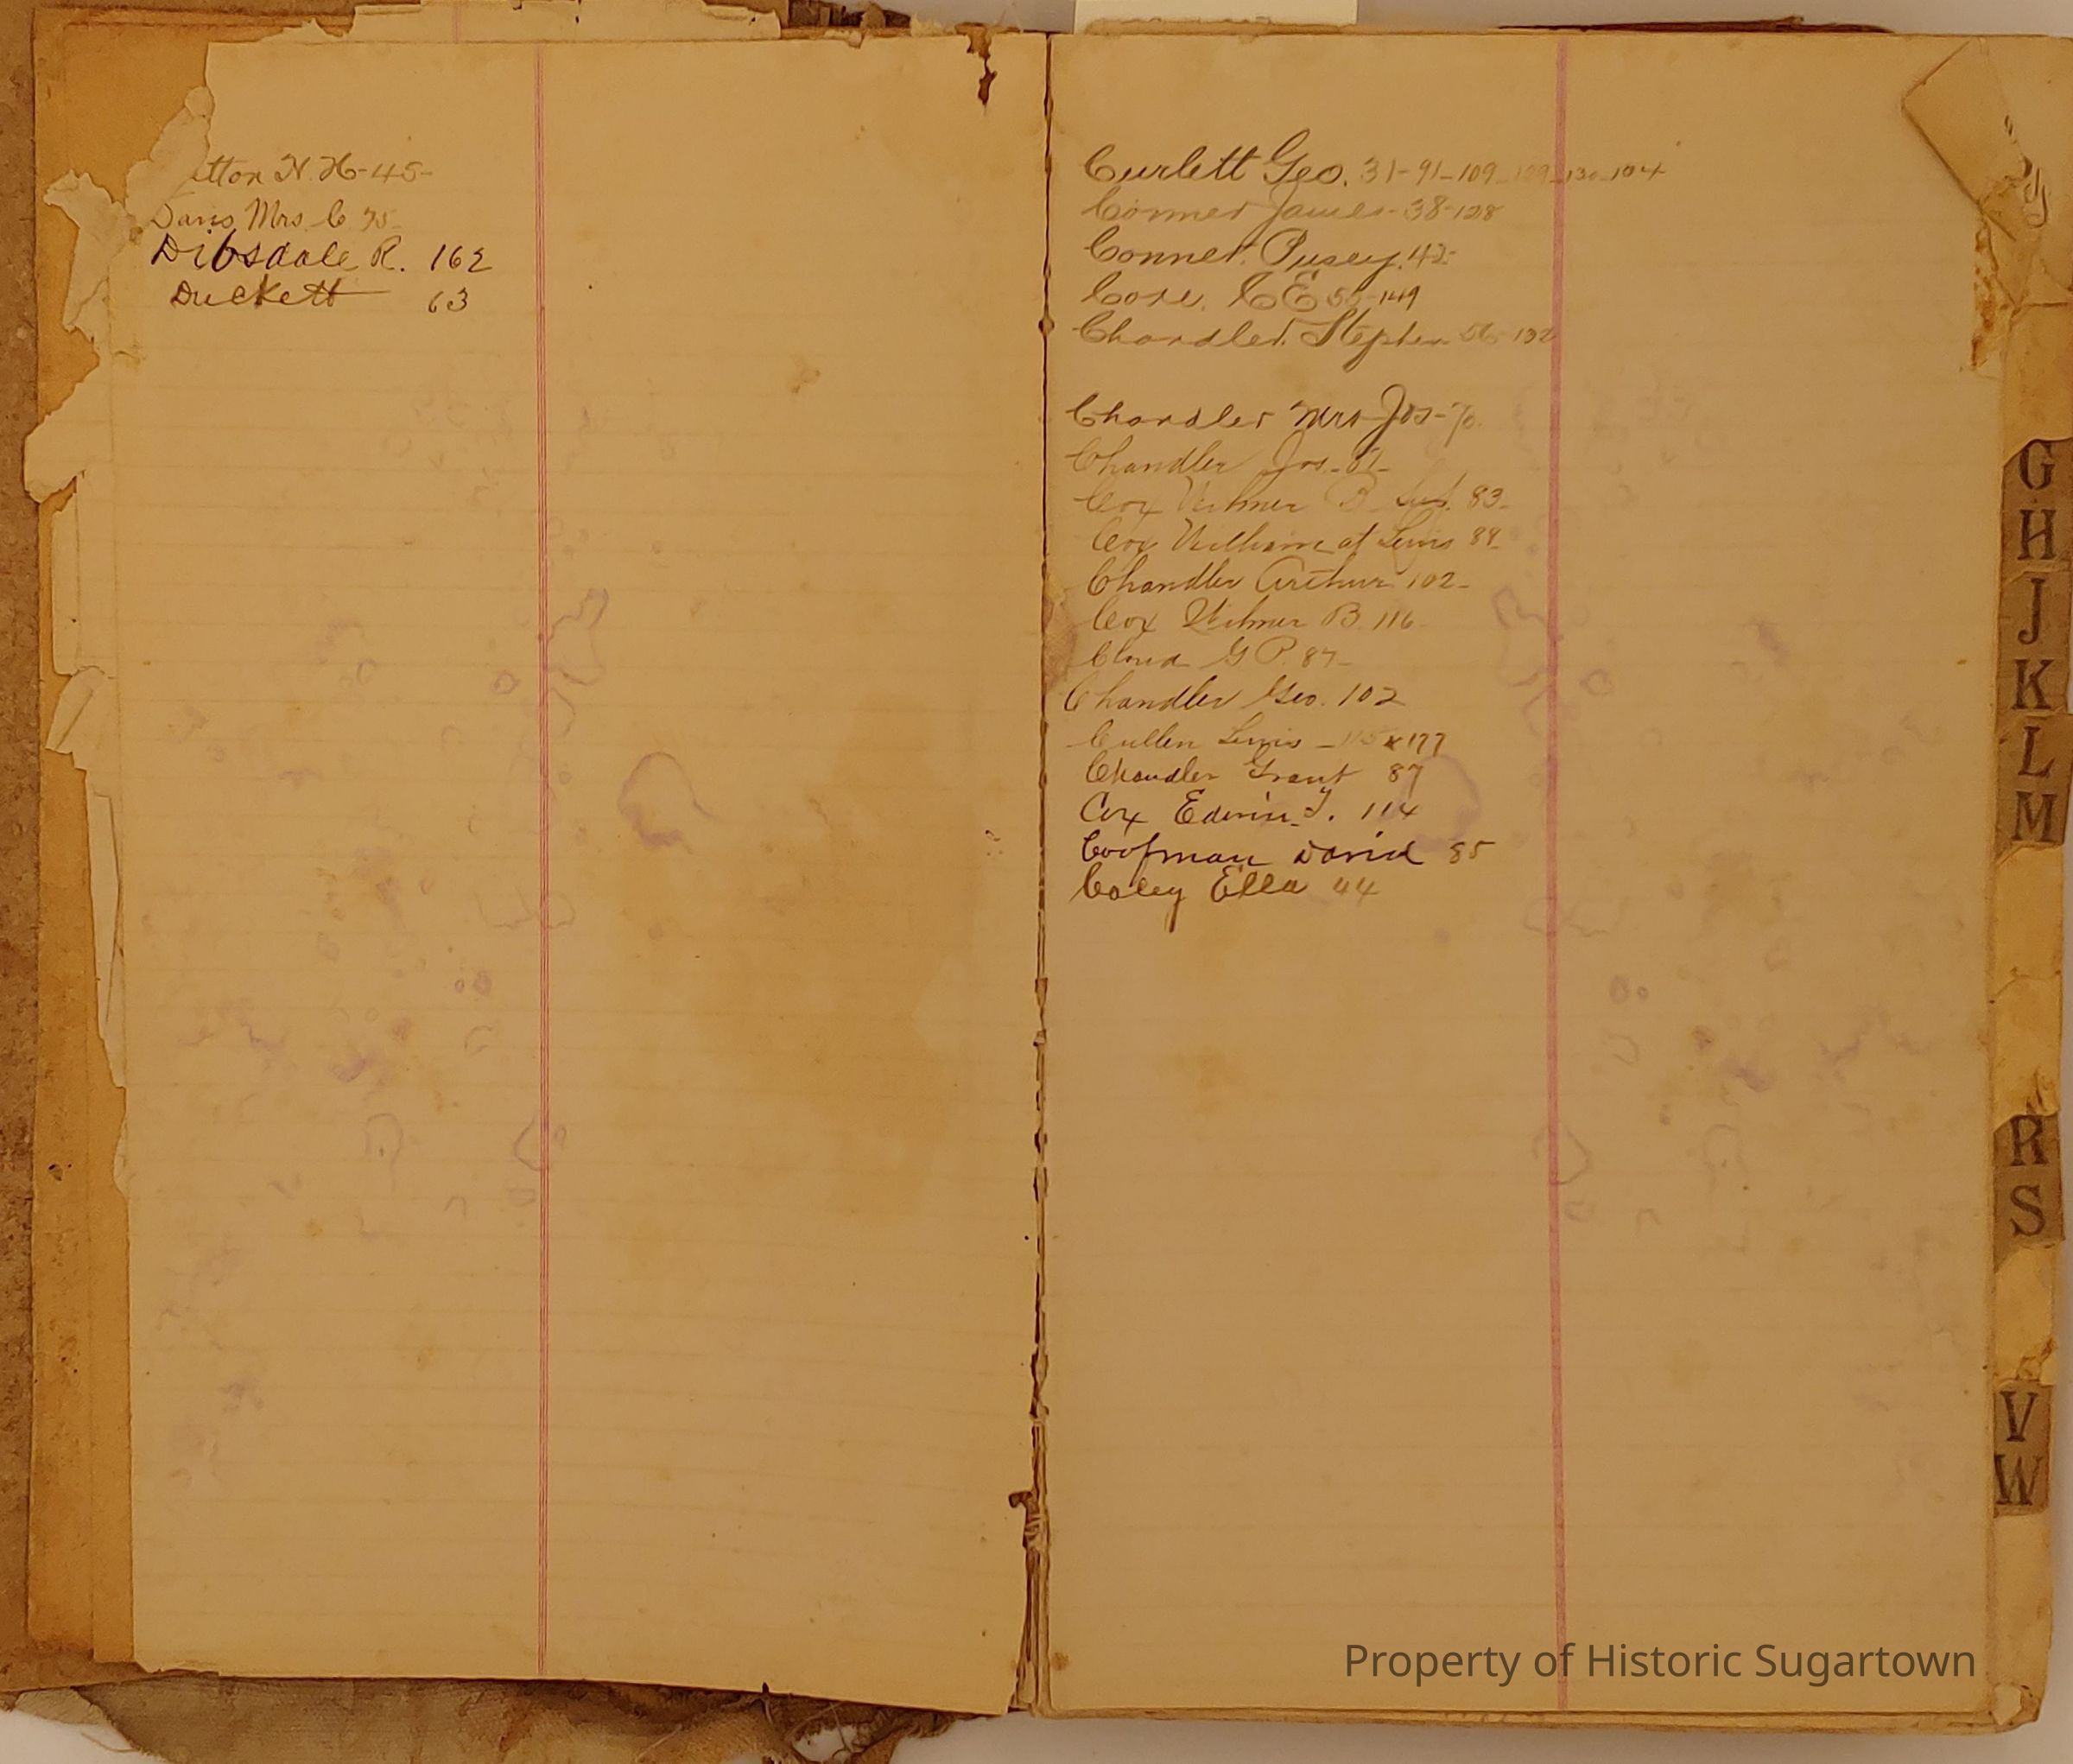 N. H-45-
Davis Mrs. C 75-
Dibsdale R. 162
Duckett 63
Curlett Geo. 31-91-109-129-130-104
Conner James-38-128
Conner. Pusey. 42-
Coxe. C E 55-149
Chandler. Stephen 56-132
Chandler Mrs Jos-70
Chandler Jos-
Cox Wilmer B 83-
Cox William at Lewis
Chandler Arthur 102-
Cox Wilmer B. 116
Cloud G P. 87-
Chandler Geo. 102
Cullen Lewis - 115 x 177
Chandler Grant 87
Cox Edwin J. 114
David 85
Coley Ella 44
G
H
J
K
L
M
R
S
V
W
Property of Historic Sugartown